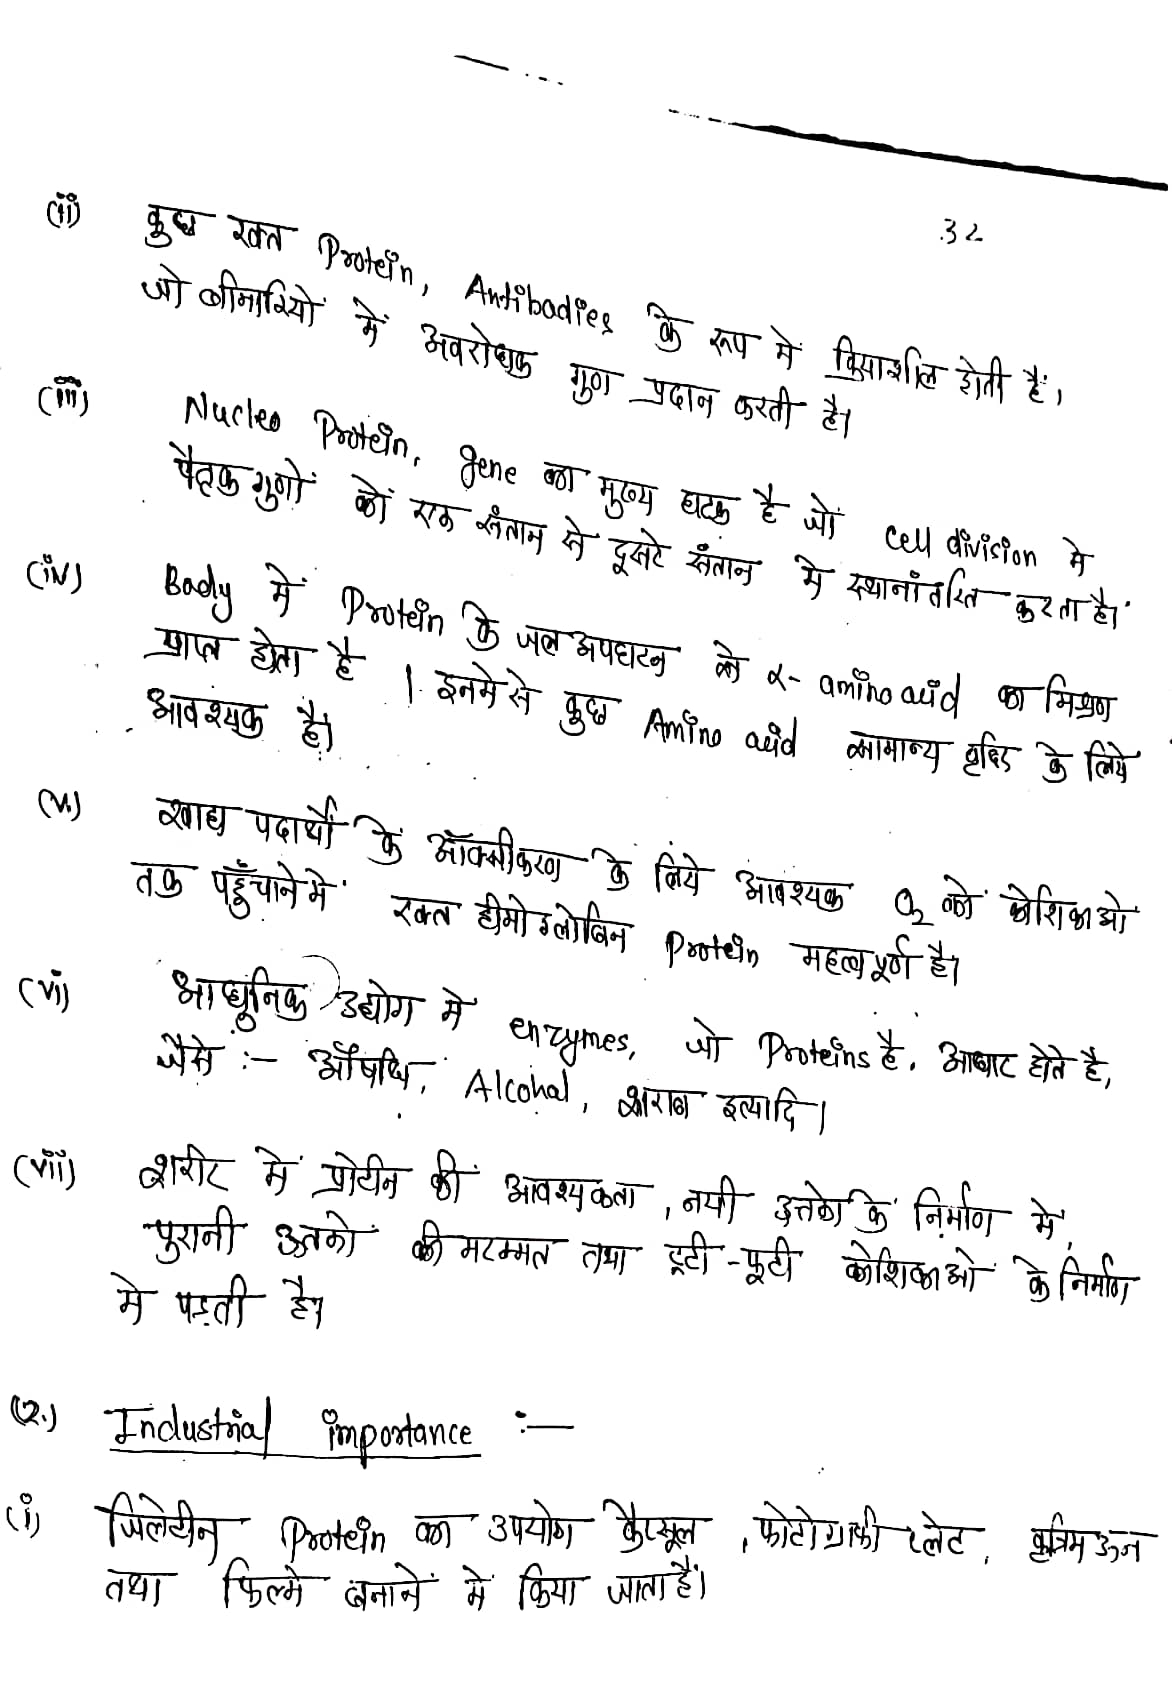 32
(ii) कुछ रक्त Protein, Antibodies के रूप में क्रियाशील होती हैं।
जो बीमारियों में अवरोधक गुण प्रदान करती है।
(iii) Nucleo Protein, gene का मुख्य घटक है जो cell division में
पैतृक गुणों को एक संतान से दूसरे संतान में स्थानांतरित करता है।
(iv) Body में Protein के जल अपघटन को α- amino acid का मिश्रण
प्राप्त होता है । इनमे से कुछ Amino acid सामान्य वृद्धि के लिये
आवश्यक हैं।
(v) खाद्य पदार्थों के ऑक्सीकरण के लिये आवश्यक O2 को कोशिकाओं
तक पहुँचाने में रक्त हीमोग्लोबिन Protein महत्वपूर्ण है।
(vi) आधुनिक उद्योग में enzymes, जो Proteins है, आधार होते है,
जैसे :- औषधि, Alcohal, शराब इत्यादि।
(vii) शरीर में प्रोटीन की आवश्यकता , नयी उत्तको के निर्माण में,
पुरानी उतकों की मरम्मत तथा टूटी-फूटी कोशिकाओं के निर्माण
मे पड़ती है।
(2.) Industrial importance :—
(i) जिलेटीन Protein का उपयोग कैप्सूल , फोटोग्राफी प्लेट, कृत्रिम ऊन
तथा फिल्मे बनाने में किया जाता है।